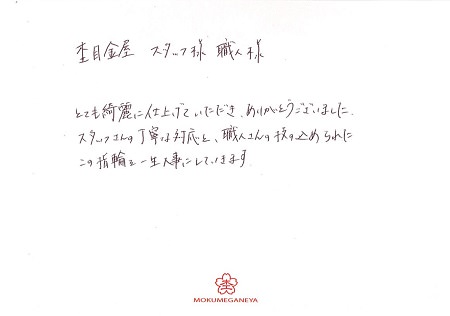 杢目金屋 スタッフ様 職人様
とても綺麗に仕上げていただき、ありがとうございました。
スタッフさんの丁寧な対応と、職人さんの技の込められた
この指輪を一生大事にしていきます
杢
MOKUMEGANEYA